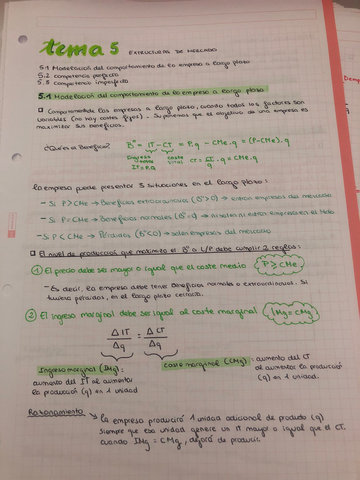 tema 5 ESTRUCTURAS DE MERCADO
5.1 Modelización del comportamiento de la empresa a largo plazo
5.2 competencia perfecta
5.3 Competencia imperfecta
5.1 Modelización del comportamiento de la empresa a largo plazo
Comportamiento de las empresas a largo plazo, cuando todos los factores son
variables (no hay costes fijos). Suponemos que el objetivo de una empresa es
maximizar sus beneficios.
¿Qué es Beneficio? B⁰ = IT - CT = P.q - CMe.q = (P-CMe).q
Ingreso total IT=P.Q
coste total CT = CT/q . q = CMe.q
la empresa puede presentar 3 situaciones en el largo plazo:
- Si P > CMe → Beneficios extraordinarios (B⁰>0) → entran empresas del mercado
- Si P = CMe → Beneficios normales (B⁰=0) → ni salen ni entran empresas en el Mdo
- Si P < CMe → Pérdidas (B⁰<0) → salen empresas del mercado
El nivel de producción que maximiza el B⁰ a L/P debe cumplir 2 reglas:
① El precio debe ser mayor o igual que el coste medio P ≥ CMe
- Es decir, la empresa debe tener Beneficios normales o extraordinarios. Si
tuviera pérdidas, en el largo plazo cerraría.
② El ingreso marginal debe ser igual al coste marginal IMg = CMg
ΔIT/Δq = ΔCT/Δq
Ingreso marginal (IMg):
aumento del IT al aumentar
la producción (q) en 1 unidad
Coste marginal (CMg): aumento del CT
al aumentar la producción
(q) en 1 unidad.
Razonamiento → la empresa producirá 1 unidad adicional de producto (q)
siempre que esa unidad genere un IT mayor o igual que el CT.
cuando IMg = CMg, dejará de producir.